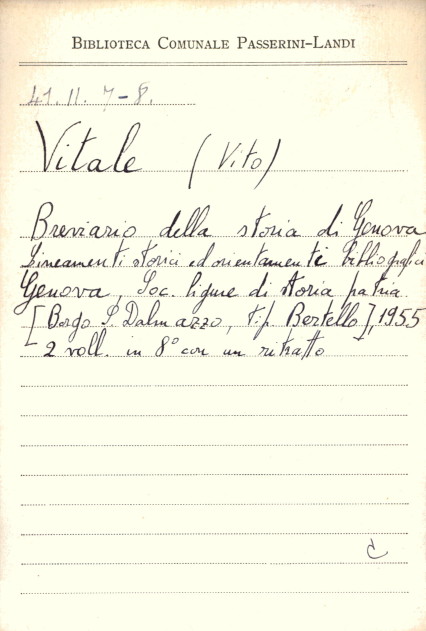 BIBLIOTECA COMUNALE PASSERINI-LANDI
41. II. 7-8.
Vitale (Vito)
Breviario della storia di Genova
Lineamenti storici ed orientamenti bibliografici
Genova, Soc. ligure di storia patria
[Borgo S. Dalmazzo, tip. Bertello], 1955
2 voll. in 8° con un ritratto
C